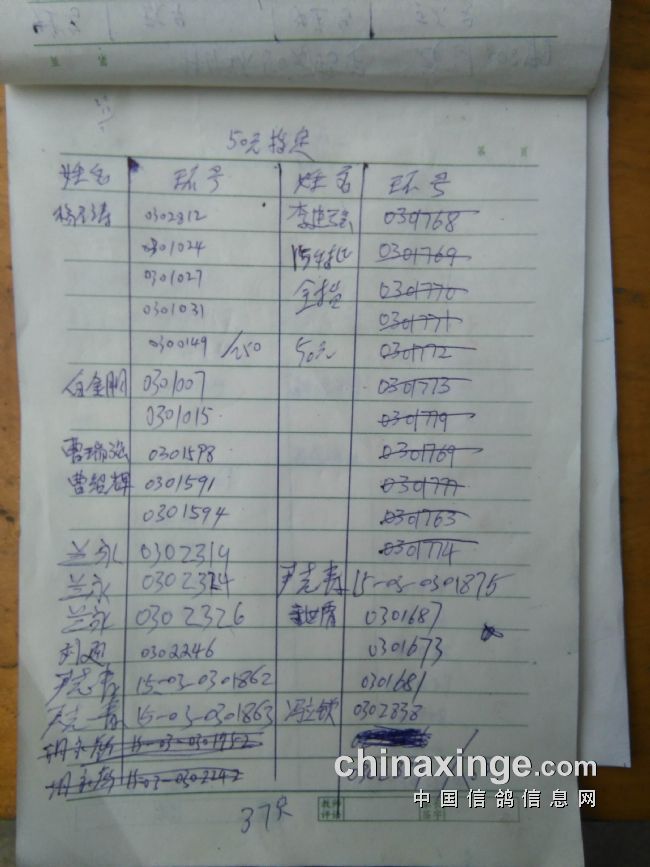 50元指定
姓名 环号 姓名 环号
0302812 0301768
0301024 0301769
0301027 全指 0301770
0301031 0301771
0300149 /250 50元 0301772
白金刚 0301007 0301773
0301015 0301779
曹瑞 0301598 0301769
曹铭辉 0301591 0301777
0301594 0301763
兰永 0302319 0301774
兰永 0302324 尹志春 15-03-0301875
兰永 0302326 0301687
0302246 0301673
尹志春 15-03-0301862 0301681
尹志春 15-03-0301863 冯立钦 0302838
15-03-0301952
15-03-0302242
37只
教师评语
签字
chinaxinge.com
中国信鸽信息网